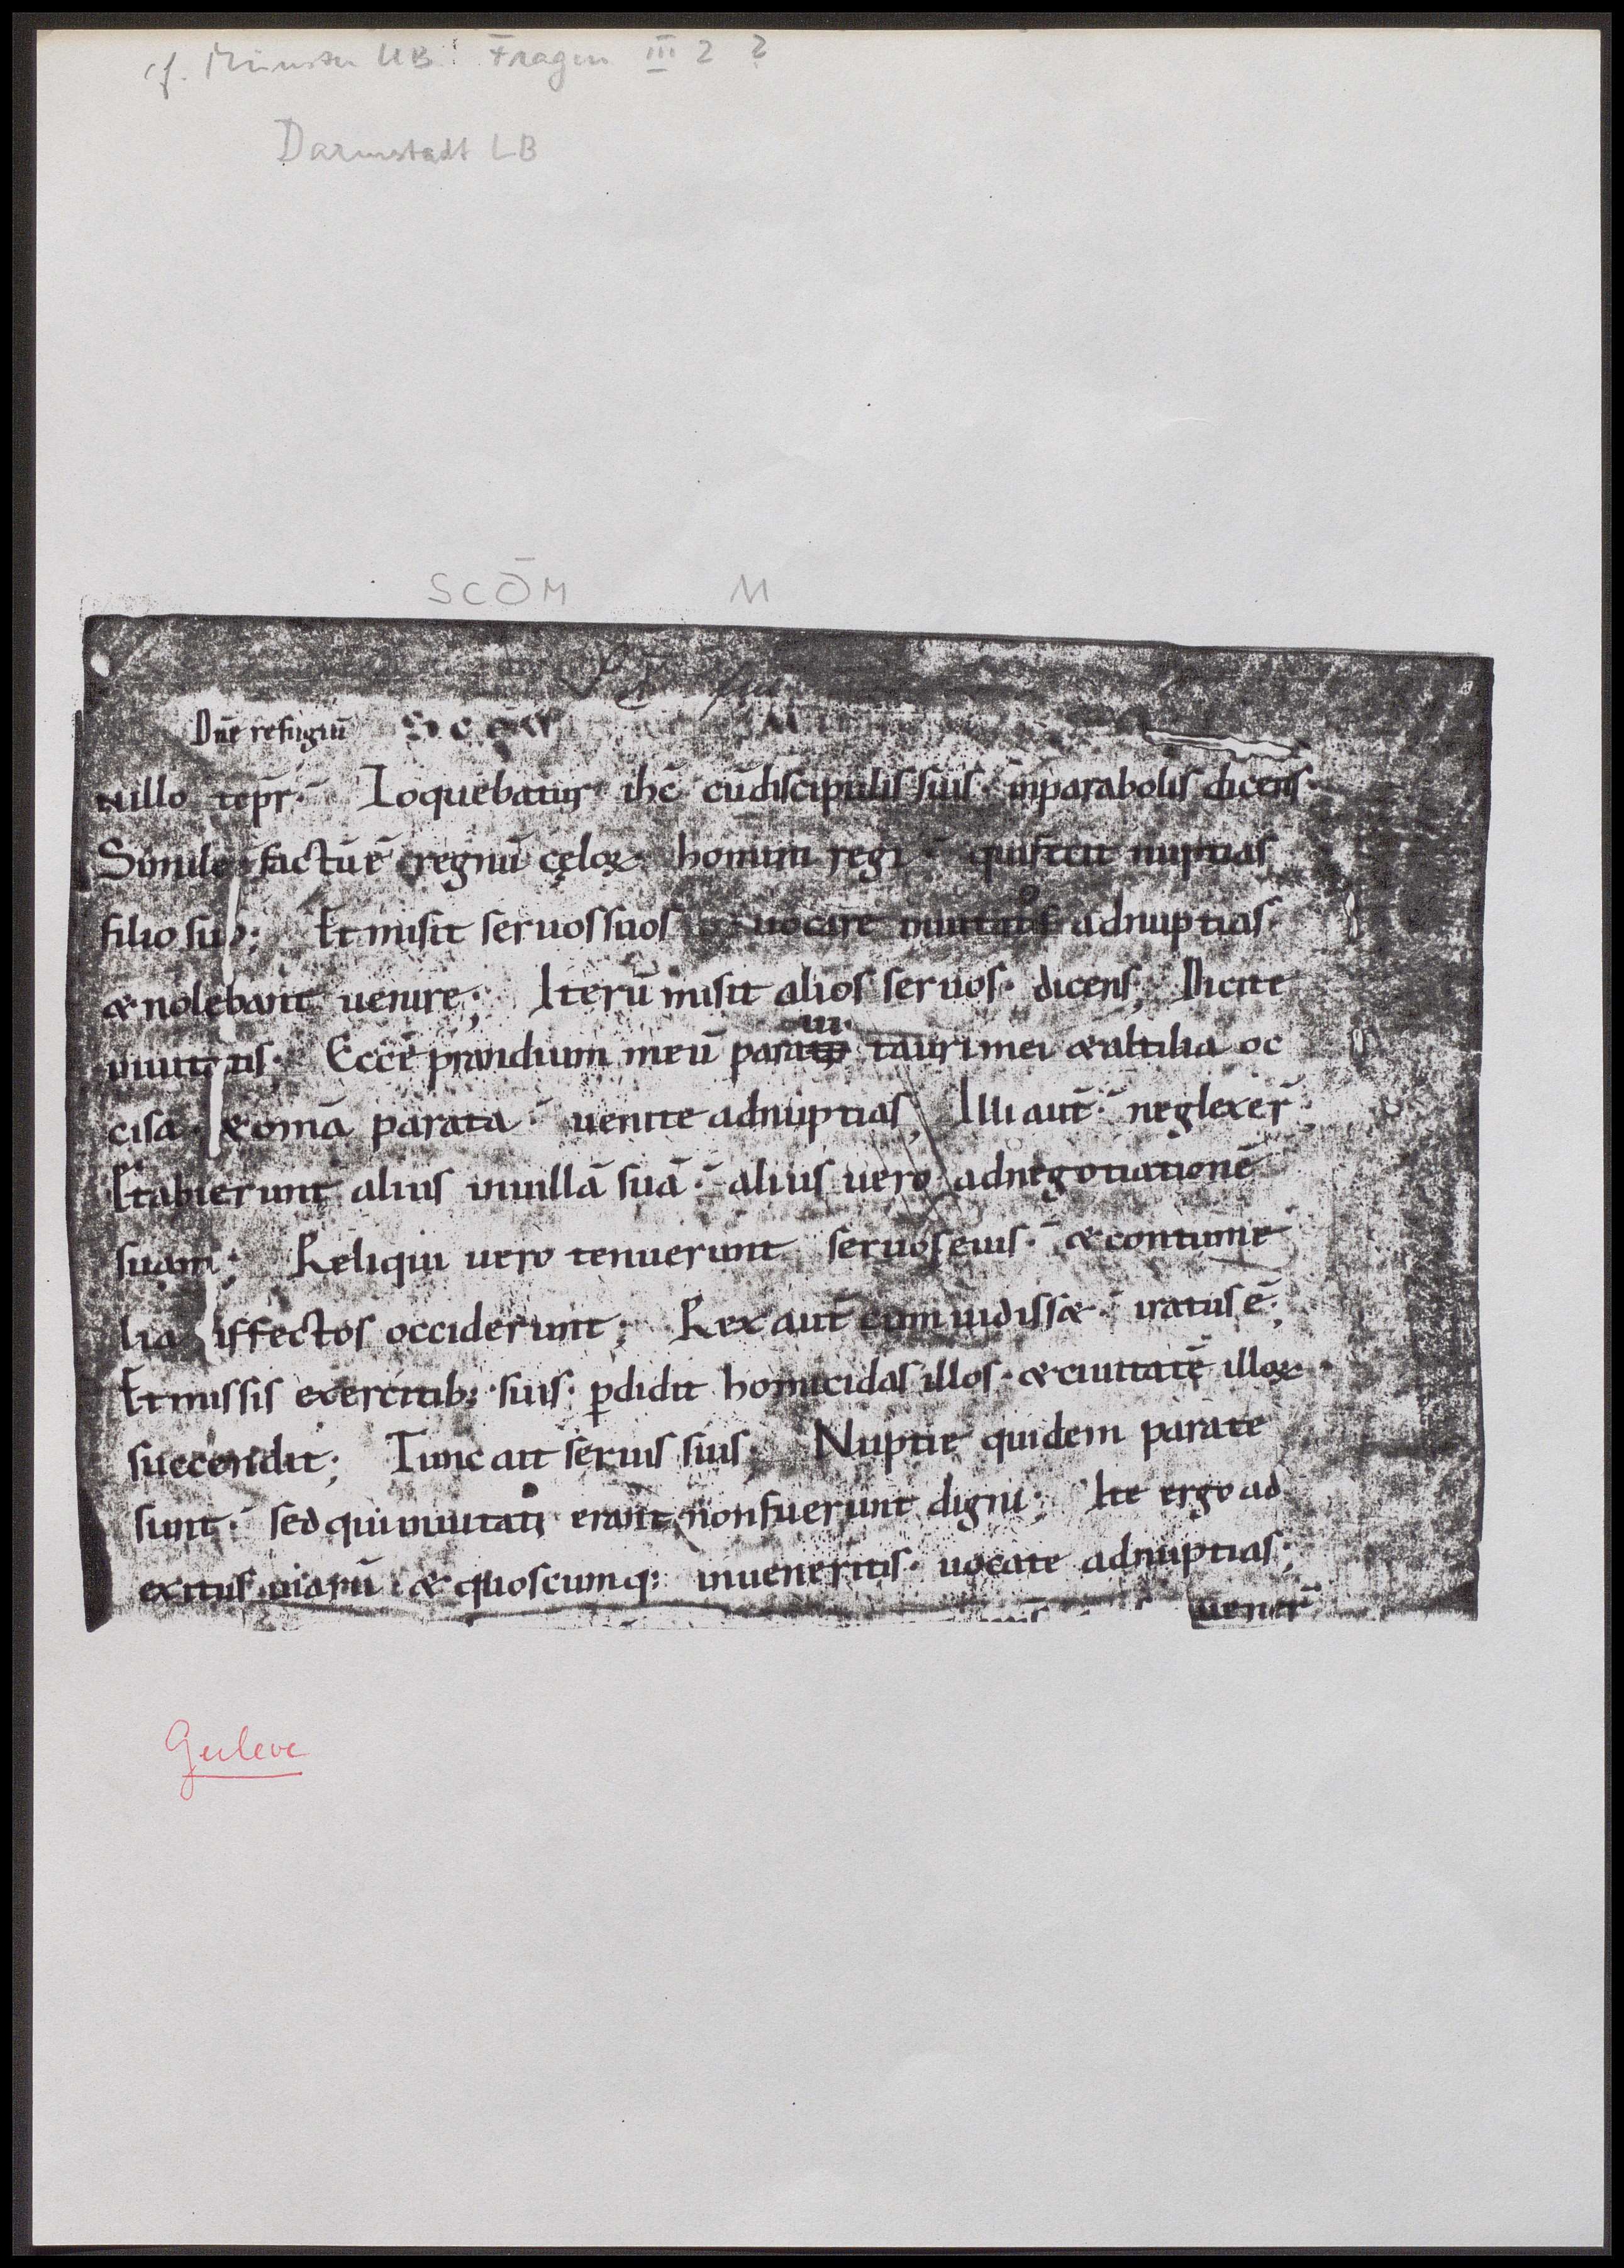 cf. Münster UB: Fragm. III 2 ?
Darmstadt LB
SCŌM M
Dn̄e refugiū
nillo tēpr̄· Loquebatur ihc̄ cūdiscipulis suis· inparabolis dicens·
Simile factū ē regnū cęloꝝ homini regi· quifecit nuptias
filio suo; Et misit seruos suos uocare inuitatos adnuptias·
& nolebant uenire; Iterū misit alios seruos· dicens; Dicite
inuitatis; Ecce prandium meū paraui taurimei & altilia oc
cisa· & om̄a parata· uenite adnuptias; Illi aut̄· neglexer̄
Etabierunt alius inuillā suā· alius uero adnegotiationē
suam; Reliqui uero tenuerunt seruos eius· & contume
lia affectos occiderunt; Rex aut̄ cum uidiss&· iratus ē;
Et missis exercitib; suis· ꝑdidit homicidas illos· & ciuitatē illoꝝ
succendit; Tunc ait seruis suis; Nuptie quidem parate
sunt· sed qui inuitati erant non fuerunt digni; Ite ergo ad
exitus uiarū & quoscumq; inueneritis· uocate adnuptias;
uener̄